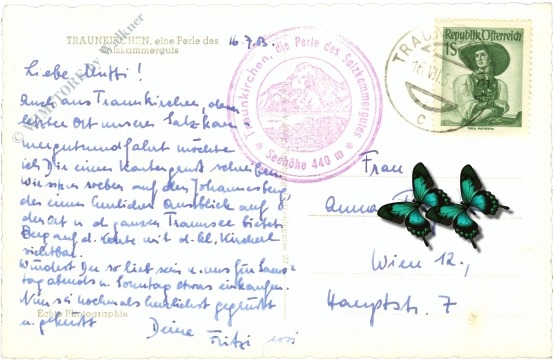 TRAUNKIRCHEN, eine Perle des
Salzkammerguts
16.7.53
Liebe Mutti!
Auch aus Traunkirchen, dem
letzten Ort unserer Salzkam-
mergutrundfahrt möchte
ich Dir einen Kartengruß schreiben.
Wir sitzen soeben auf der Johannesberg,
der einen herrlichen Ausblick auf
den Ort u. d. ganzen Traunsee bietet.
Berg auf d. Karte mit d. kl. Kircherl
sichtbar.
Würdest Du so lieb sein u. uns für Sams-
tag abends u. Sonntag etwas einkaufen.
Nun sei nochmals herzlichst gegrüßt
u. geküßt
Deine Fritzi
Echte Photographie
Traunkirchen, die Perle des Salzkammergutes
* Seehöhe 440 m *
TRAUN
16.VII.
C
Republik Österreich
1S
Frau
Anna
Wien 12.,
Hauptstr. 7
© SAMTOREbyFalkner